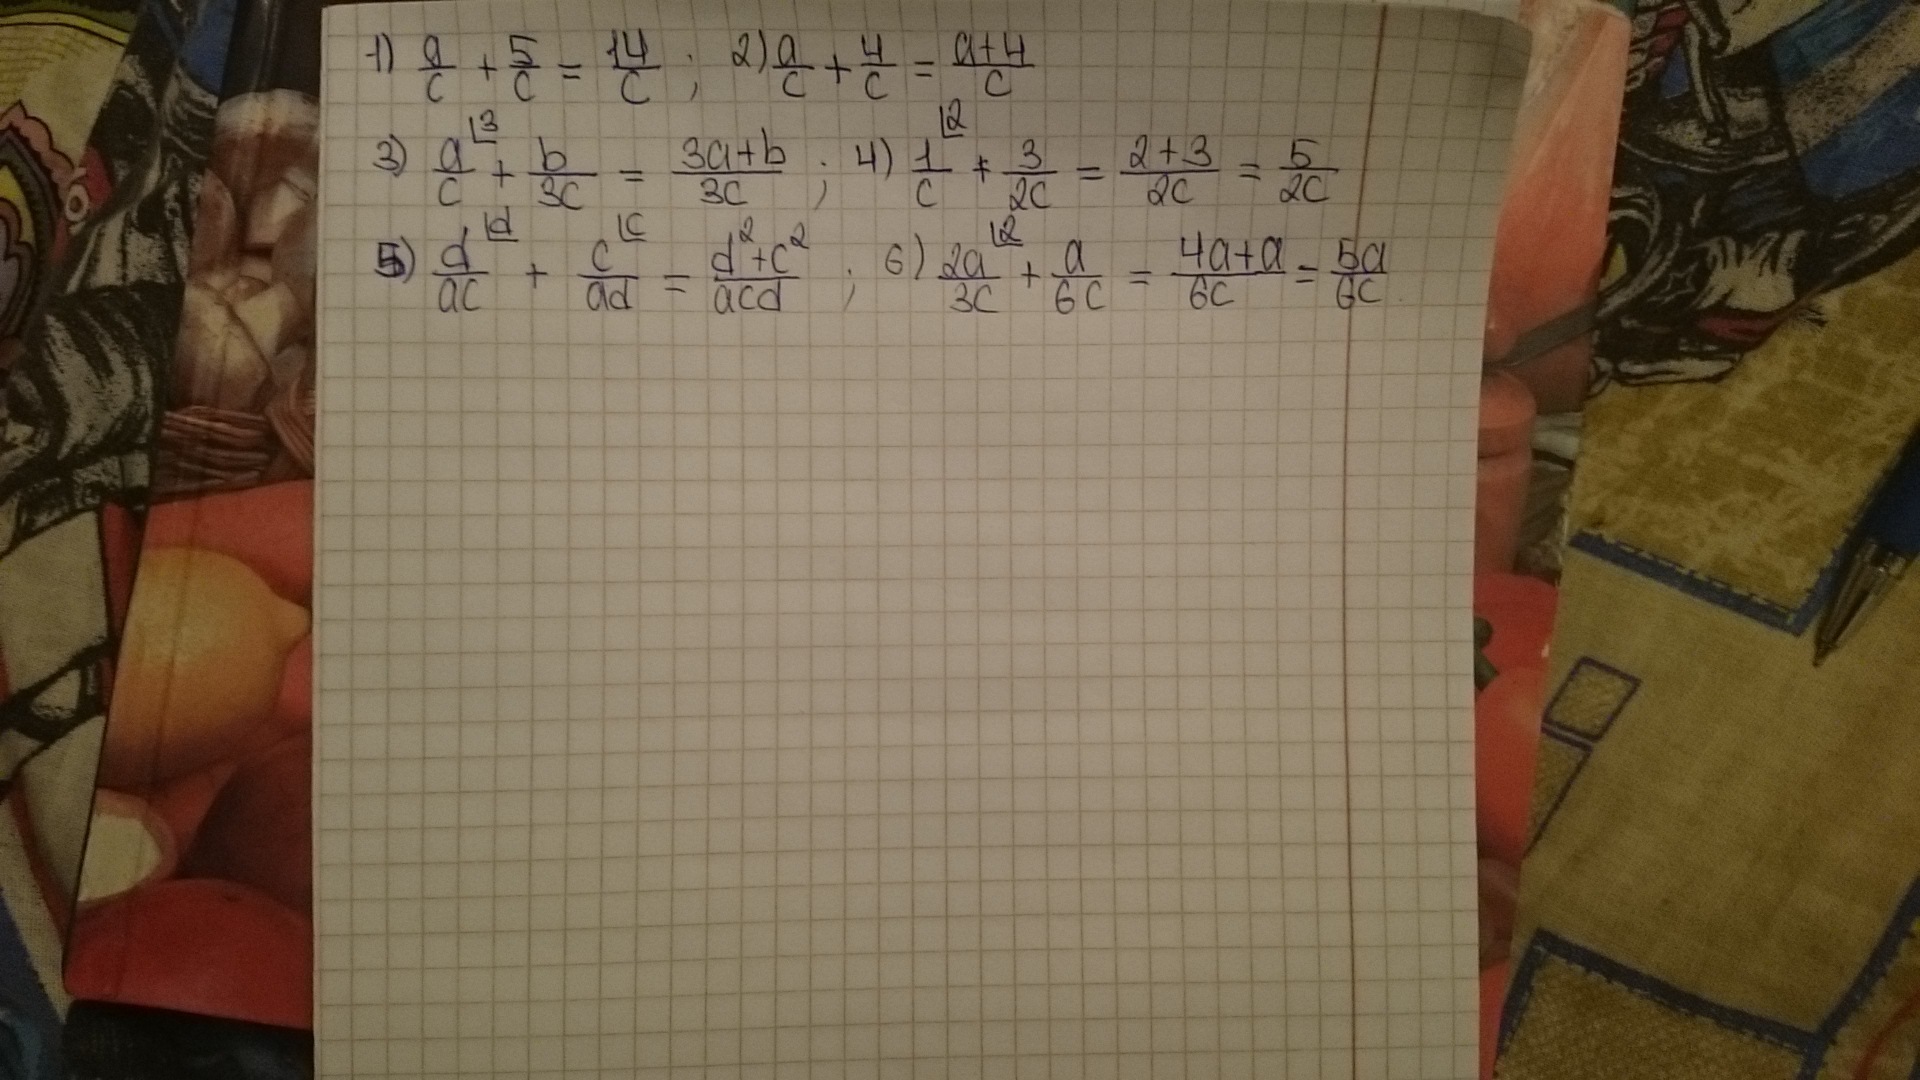 1) a/c + 5/c = 14/c ; 2) a/c + 4/c = a+4/c
3) a/c ⌊3 + b/3c = 3a+b/3c ; 4) 1/c ⌊2 + 3/2c = 2+3/2c = 5/2c
5) d/ac ⌊d + c/ad ⌊c = d²+c²/acd ; 6) 2a/3c ⌊2 + a/6c = 4a+a/6c = 5a/6c